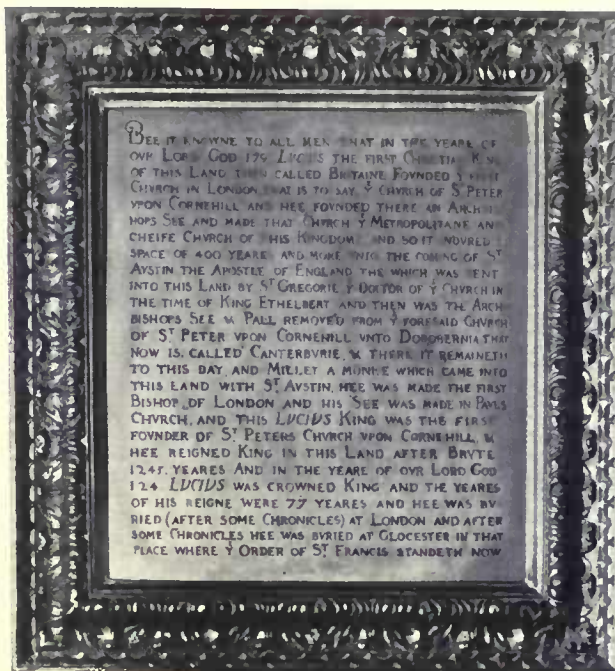 BEE IT KNOWNE TO ALL MEN THAT IN THE YEARE OF
OVR LORD GOD 179 LUCIUS THE FIRST CHRISTIAN KING
OF THIS LAND THEN CALLED BRITAINE FOVNDED Y FIRST
CHVRCH IN LONDON THAT IS TO SAY Y CHVRCH OF ST PETER
VPON CORNEHILL AND HEE FOVNDED THERE AN ARCH
HOPS SEE AND MADE THAT CHVRCH Y METROPOLITANE AN
CHEIFE CHVRCH OF THIS KINGDOM AND SO IT NDVRED
SPACE OF 400 YEARE AND MORE VNTO THE COMING OF ST
AVSTIN THE APOSTLE OF ENGLAND THE WHICH WAS SENT
INTO THIS LAND BY ST GREGORIE Y DOCTOR OF Y CHVRCH IN
THE TIME OF KING ETHELBERT AND THEN WAS THE ARCH
BISHOPS SEE & PALL REMOVED FROM Y FORESAID CHVRCH
OF ST PETER VPON CORNEHILL VNTO DOROBERNIA THAT
NOW IS CALLED CANTERBVRIE, & THERE IT REMAINETH
TO THIS DAY, AND MILLET A MONKE WHICH CAME INTO
THIS LAND WITH ST AVSTIN, HEE WAS MADE THE FIRST
BISHOP OF LONDON AND HIS SEE WAS MADE IN PAVLS
CHVRCH, AND THIS LUCIUS KING WAS THE FIRST
FOVNDER OF ST PETERS CHVRCH VPON CORNEHILL, &
HEE REIGNED KING IN THIS LAND AFTER BRVTE
1245. YEARES AND IN THE YEARE OF OVR LORD GOD
124 LUCIUS WAS CROWNED KING AND THE YEARES
OF HIS REIGNE WERE 77 YEARES AND HEE WAS BV
RIED (AFTER SOME CHRONICLES) AT LONDON AND AFTER
SOME CHRONICLES HEE WAS BVRIED AT GLOCESTER IN THAT
PLACE WHERE Y ORDER OF ST FRANCIS STANDETH NOW